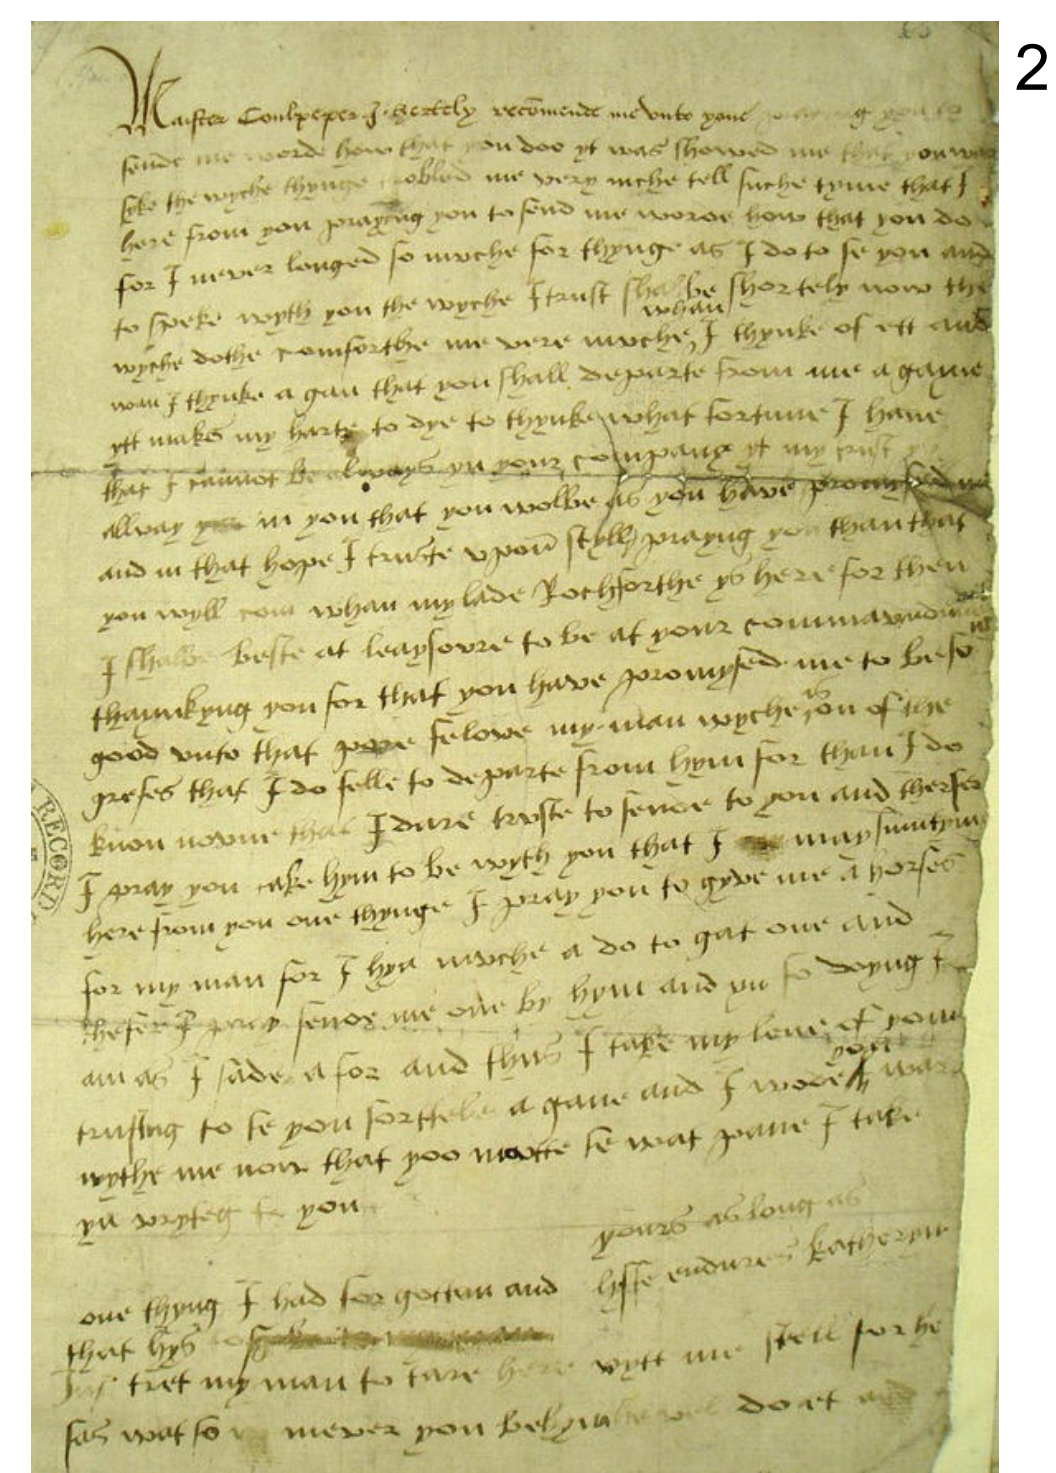 2
Maister Coulpeper I hertely recomende me vnto youe praying you to
sende me worde how that you doo yt was showed me that you was
syke the wyche thynge trobled me very muche tell suche tyme that I
here from you prayeng you to send me worde how that you do
for I never longed so muche for thynge as I do to se you and
to speke wyth you the wyche I trust shal be shortely now the
whan
wyche dothe comforthe me vere muche I thynke of ett and
wan I thynke a gan that you shall departe from me a gaine
ytt makes my harte to dye to thynke what fortune I have
that I cannot be always yn your company yt my trust ys
allway in you that you wolbe as you have promysed me
and in that hope I truste vpon styll prayng you than that
you wyll com whan my lade Rochforthe ys here for then
I shalbe beste at leaysoure to be at your
thaunkyng you for that you have promysed me to be so
good vnto that pore felowe my man wyche is on of the
grefes that I do felle to departe from hym for than I do
know noone that I dare truste to sende to you and therfor
I pray you take hym to be wyth you that I may sumtym
here from you one thynge I pray you to gyve me a horse
for my man for I hyd muche a do to gat one and
thefer I pray sende me one by hym and yn so doyng I
am as I sade afor and thus I take my leve of you
you
trusting to se you shorttele a gane and I wode was
wythe me now that yoo maitte se wat pane I take
yn wryteg to you
yours as long as
lyffe endures
Katheryn
one thyng I had forgotten and
that hys
tret my man to tare here wytt me still for he
sas wat so mever you bed hym he wel do et and
RECORD